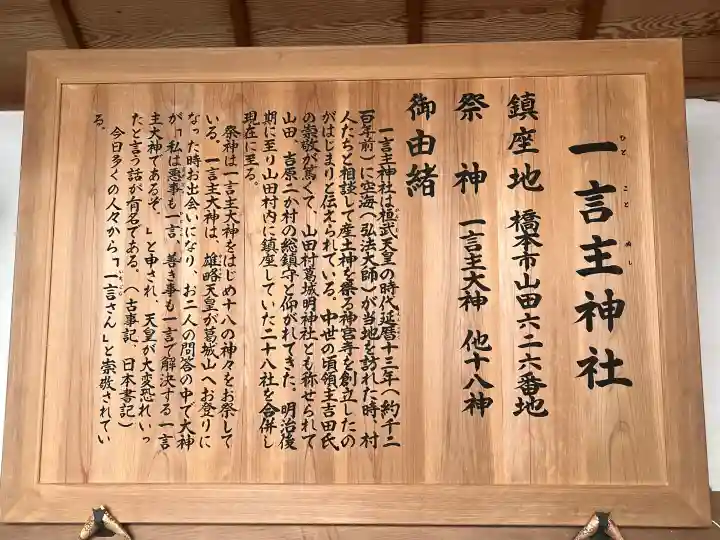 一言主神社
ひと こと ぬし
鎮座地 橋本市山田六二六番地
祭神 一言主大神 他十八神
御由緒
一言主神社は桓武天皇の時代延暦十三年(約千二
百年前)に空海(弘法大師)が当地を訪れた時、村
人たちと相談して産土神を祭る神宮寺を創立したの
がはじまりと伝えられている。中世の頃領主吉田氏
の崇敬が篤くて、山田村葛城明神社とも称せられて
山田、吉原二か村の総鎮守と仰がれてきた。明治後
期に至り山田村内に鎮座していた二十八社を合併し
現在に至る。
祭神は一言主大神をはじめ十八の神々をお祭して
いる。一言主大神は、雄略天皇が葛城山へお登りに
なった時お出会いになり、お二人の問答の中で大神
が「私は悪事も一言、善き事も一言で解決する一言
主大神であるぞ。」と申され、天皇が大変恐れいっ
たと言う話が有名である。(古事記、日本書記)
今日多くの人々から「一言さん」と崇敬されてい
る。